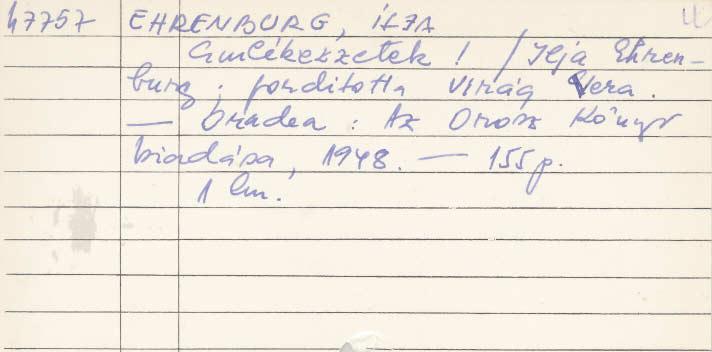 47757 EHRENBURG, ILJA U
Emlékezzetek ! / Ilja Ehren-
burg ; fordította Virág Vera.
— Oradea : Az Orosz Könyv
kiadása, 1948. — 155 p.
1 lm.